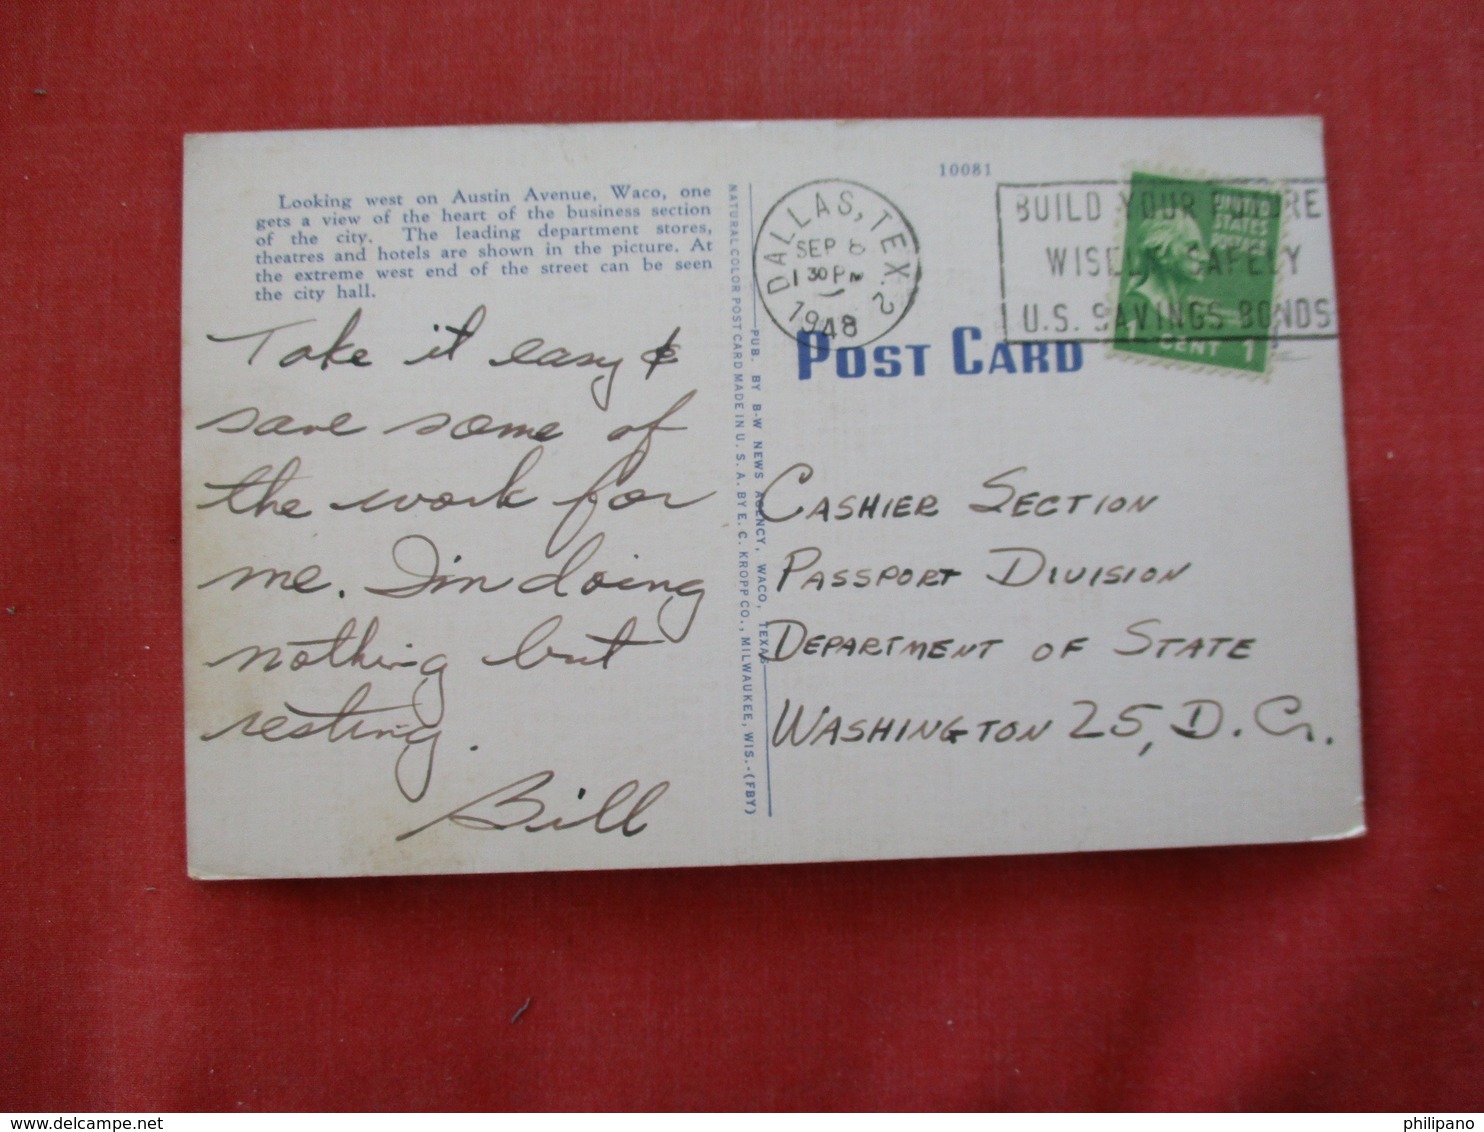 Looking west on Austin Avenue, Waco, one
gets a view of the heart of the business section
of the city. The leading department stores,
theatres and hotels are shown in the picture. At
the extreme west end of the street can be seen
the city hall.
Take it easy &
save some of
the work for
me. I'm doing
nothing but
resting.
Bill
NATURAL COLOR POST CARD MADE IN U. S. A. BY E. C. KROPP CO., MILWAUKEE, WIS.-(FBY)
PUB. BY B-W NEWS AGENCY, WACO, TEXAS
10081
DALLAS, TEX. 2
SEP 8
1 30 PM
1948
BUILD YOUR FUTURE
WISELY SAFELY
U.S. SAVINGS BONDS
UNITED
STATES
POSTAGE
1 CENT 1
POST CARD
CASHIER SECTION
PASSPORT DIVISION
DEPARTMENT OF STATE
WASHINGTON 25, D. C.
hippostcard.com
philipano